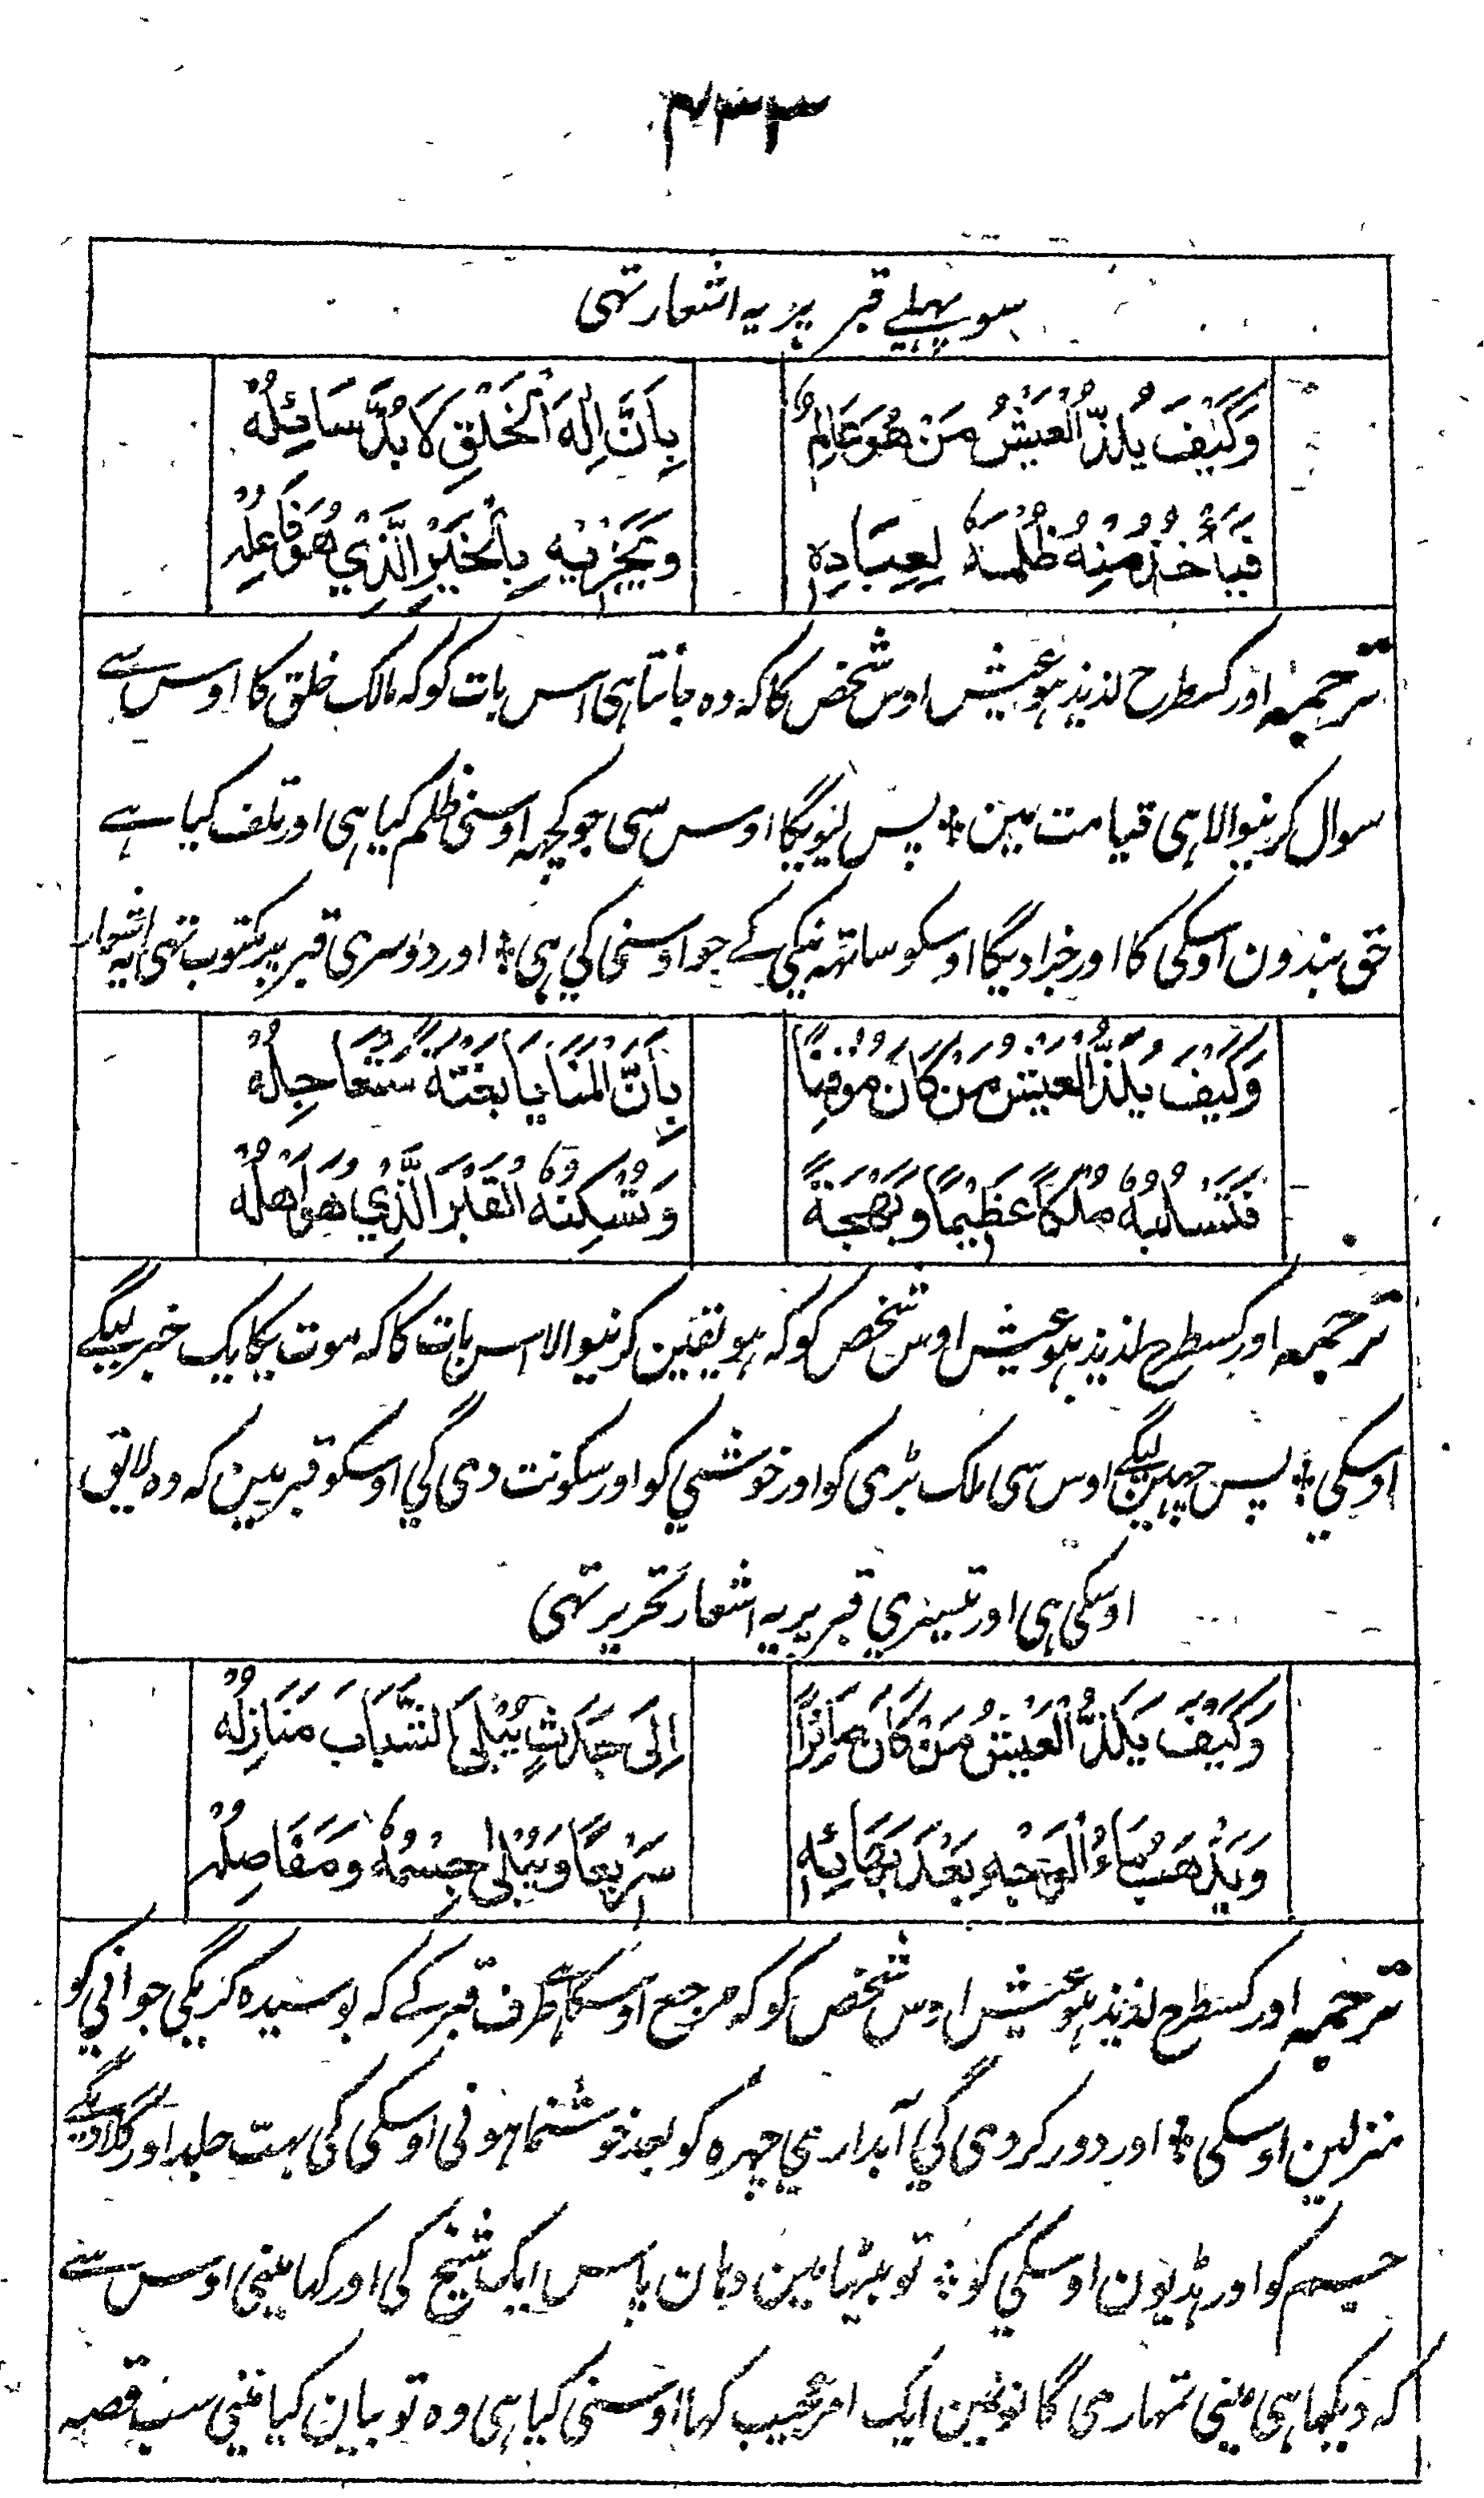 ۲۳۳
سو پہلے قبر پر یہ اشعار تہی
وَكَيْفَ يَلَذُّ الْعَيْشُ مَنْ هُوَ عَالِمٌ
بِاَنَّ اِلٰهَ الْخَلْقِ لَا بُدَّ سَائِلُهٗ
فَيَأْخُذُ مِنْهُ ظُلْمَهٗ لِعِبَادِهٖ
وَيَجْزِيْهِ بِالْخَيْرِ الَّذِيْ هُوَ فَاعِلُهٗ
ترجمہ اور کسطرح لذیذ ہو عیش اوس شخص کا کہ وہ جانتا ہی اس بات کو کہ مالک خلق کا اوس سے
سوال کرنیوالا ہی قیامت مین ٭ پس لیویگا اوس سی جو کچہہ اوسنی ظلم کیا ہی اور تلف کیا ہے
حق بندون اوسکی کا اور جزا دیگا اوسکو ساتہہ نیکی کے جو اوسنی کی ہی ٭ اور دوسری قبر پر مکتوب تہی یہ اشعار
وَكَيْفَ يَلَذُّ الْعَيْشُ مَنْ كَانَ مُوْقِنًا
بِاَنَّ الْمَنَايَا بَغْتَةً سَتُعَاجِلُهٗ
فَتَسْلُبُهٗ مُلْكًا عَظِيْمًا وَبَهْجَةً
وَتُسْكِنُهُ الْقَبْرَ الَّذِيْ هُوَ اَهْلُهٗ
ترجمہ اور کسطرح لذیذ ہو عیش اوس شخص کو کہ ہو یقین کرنیوالا اس بات کا کہ موت یکایک خبر لیگے
اوسکی ٭ پس چہین لیگے اوس سی ملک بڑی کو اور خوشی کو اور سکونت دی گی اوسکو قبر مین کہ وہ لایق
اوسکی ہی اور تیسری قبر پر یہ اشعار تحریر تہی
وَكَيْفَ يَلَذُّ الْعَيْشُ مَنْ كَانَ صَائِرًا
اِلٰى جَدَثٍ يُبْلِى الشَّبَابَ مَنَازِلُهٗ
وَيَذْهَبُ مَاءُ الْوَجْهِ بَعْدَ بَهَائِهٖ
سَرِيْعًا وَيَبْلٰى جِسْمُهٗ وَمَفَاصِلُهٗ
ترجمہ اور کسطرح لذیذ ہو عیش اوس شخص کو کہ مرجع اوسکا ہے طرف قبر کے کہ بوسیدہ کریگی جوانی کو
منزلین اوسکی ٭ اور دور کر دی گی آبداری چہرہ کو بعد خوشنما ہونی اوسکی کی بہت جلد اور گلا دیگے
جسم کو اور ہڈیون اوسکی کو ٭ تو بیٹہا مین وہان پاس ایک شیخ کی اور کہا مینی اوس سے
کہ دیکہا ہی مینی تمہاری گانون مین ایک امر عجیب کہا اوسنی کیا ہی وہ تو بیان کیا مینی سب قصہ